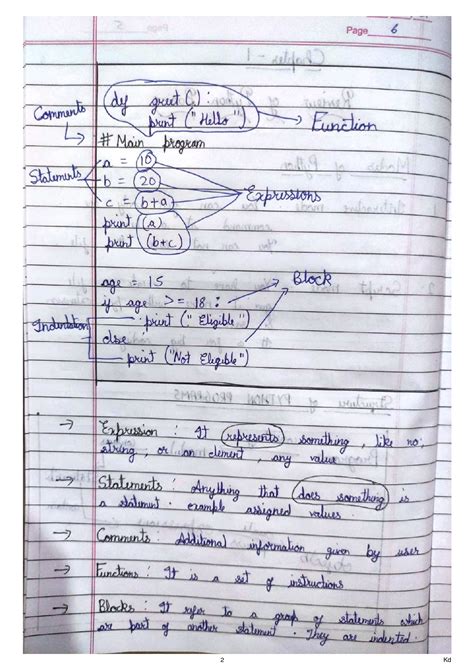 Page 6
def greet():
print ("Hello")
Function
Comments
# Main program
Statements
a = 10
b = 20
c = b+a
Expressions
print (a)
print (b+c)
age = 15
Block
if age >= 18 :
Indentation
print ("Eligible")
else :
print ("Not Eligible")
→ Expression : It represents something, like no;
string, or an element, any value
→ Statements : Anything that does something is
a statement. example assigned values.
→ Comments : Additional information given by user
→ Functions : It is a set of instructions
→ Blocks : It refer to a group of statements which
are part of another statement. They are indented.
2
Kd